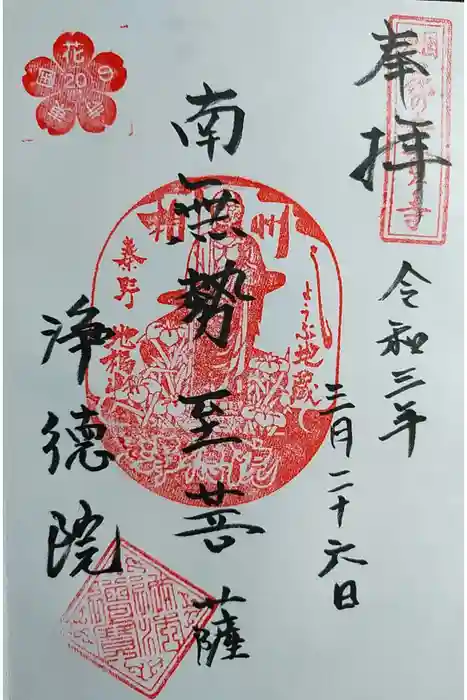 奉拝
令和三年
三月二十六日
南無勢至菩薩
浄徳院
花の
20
相州
秦野
しょうぶ地蔵